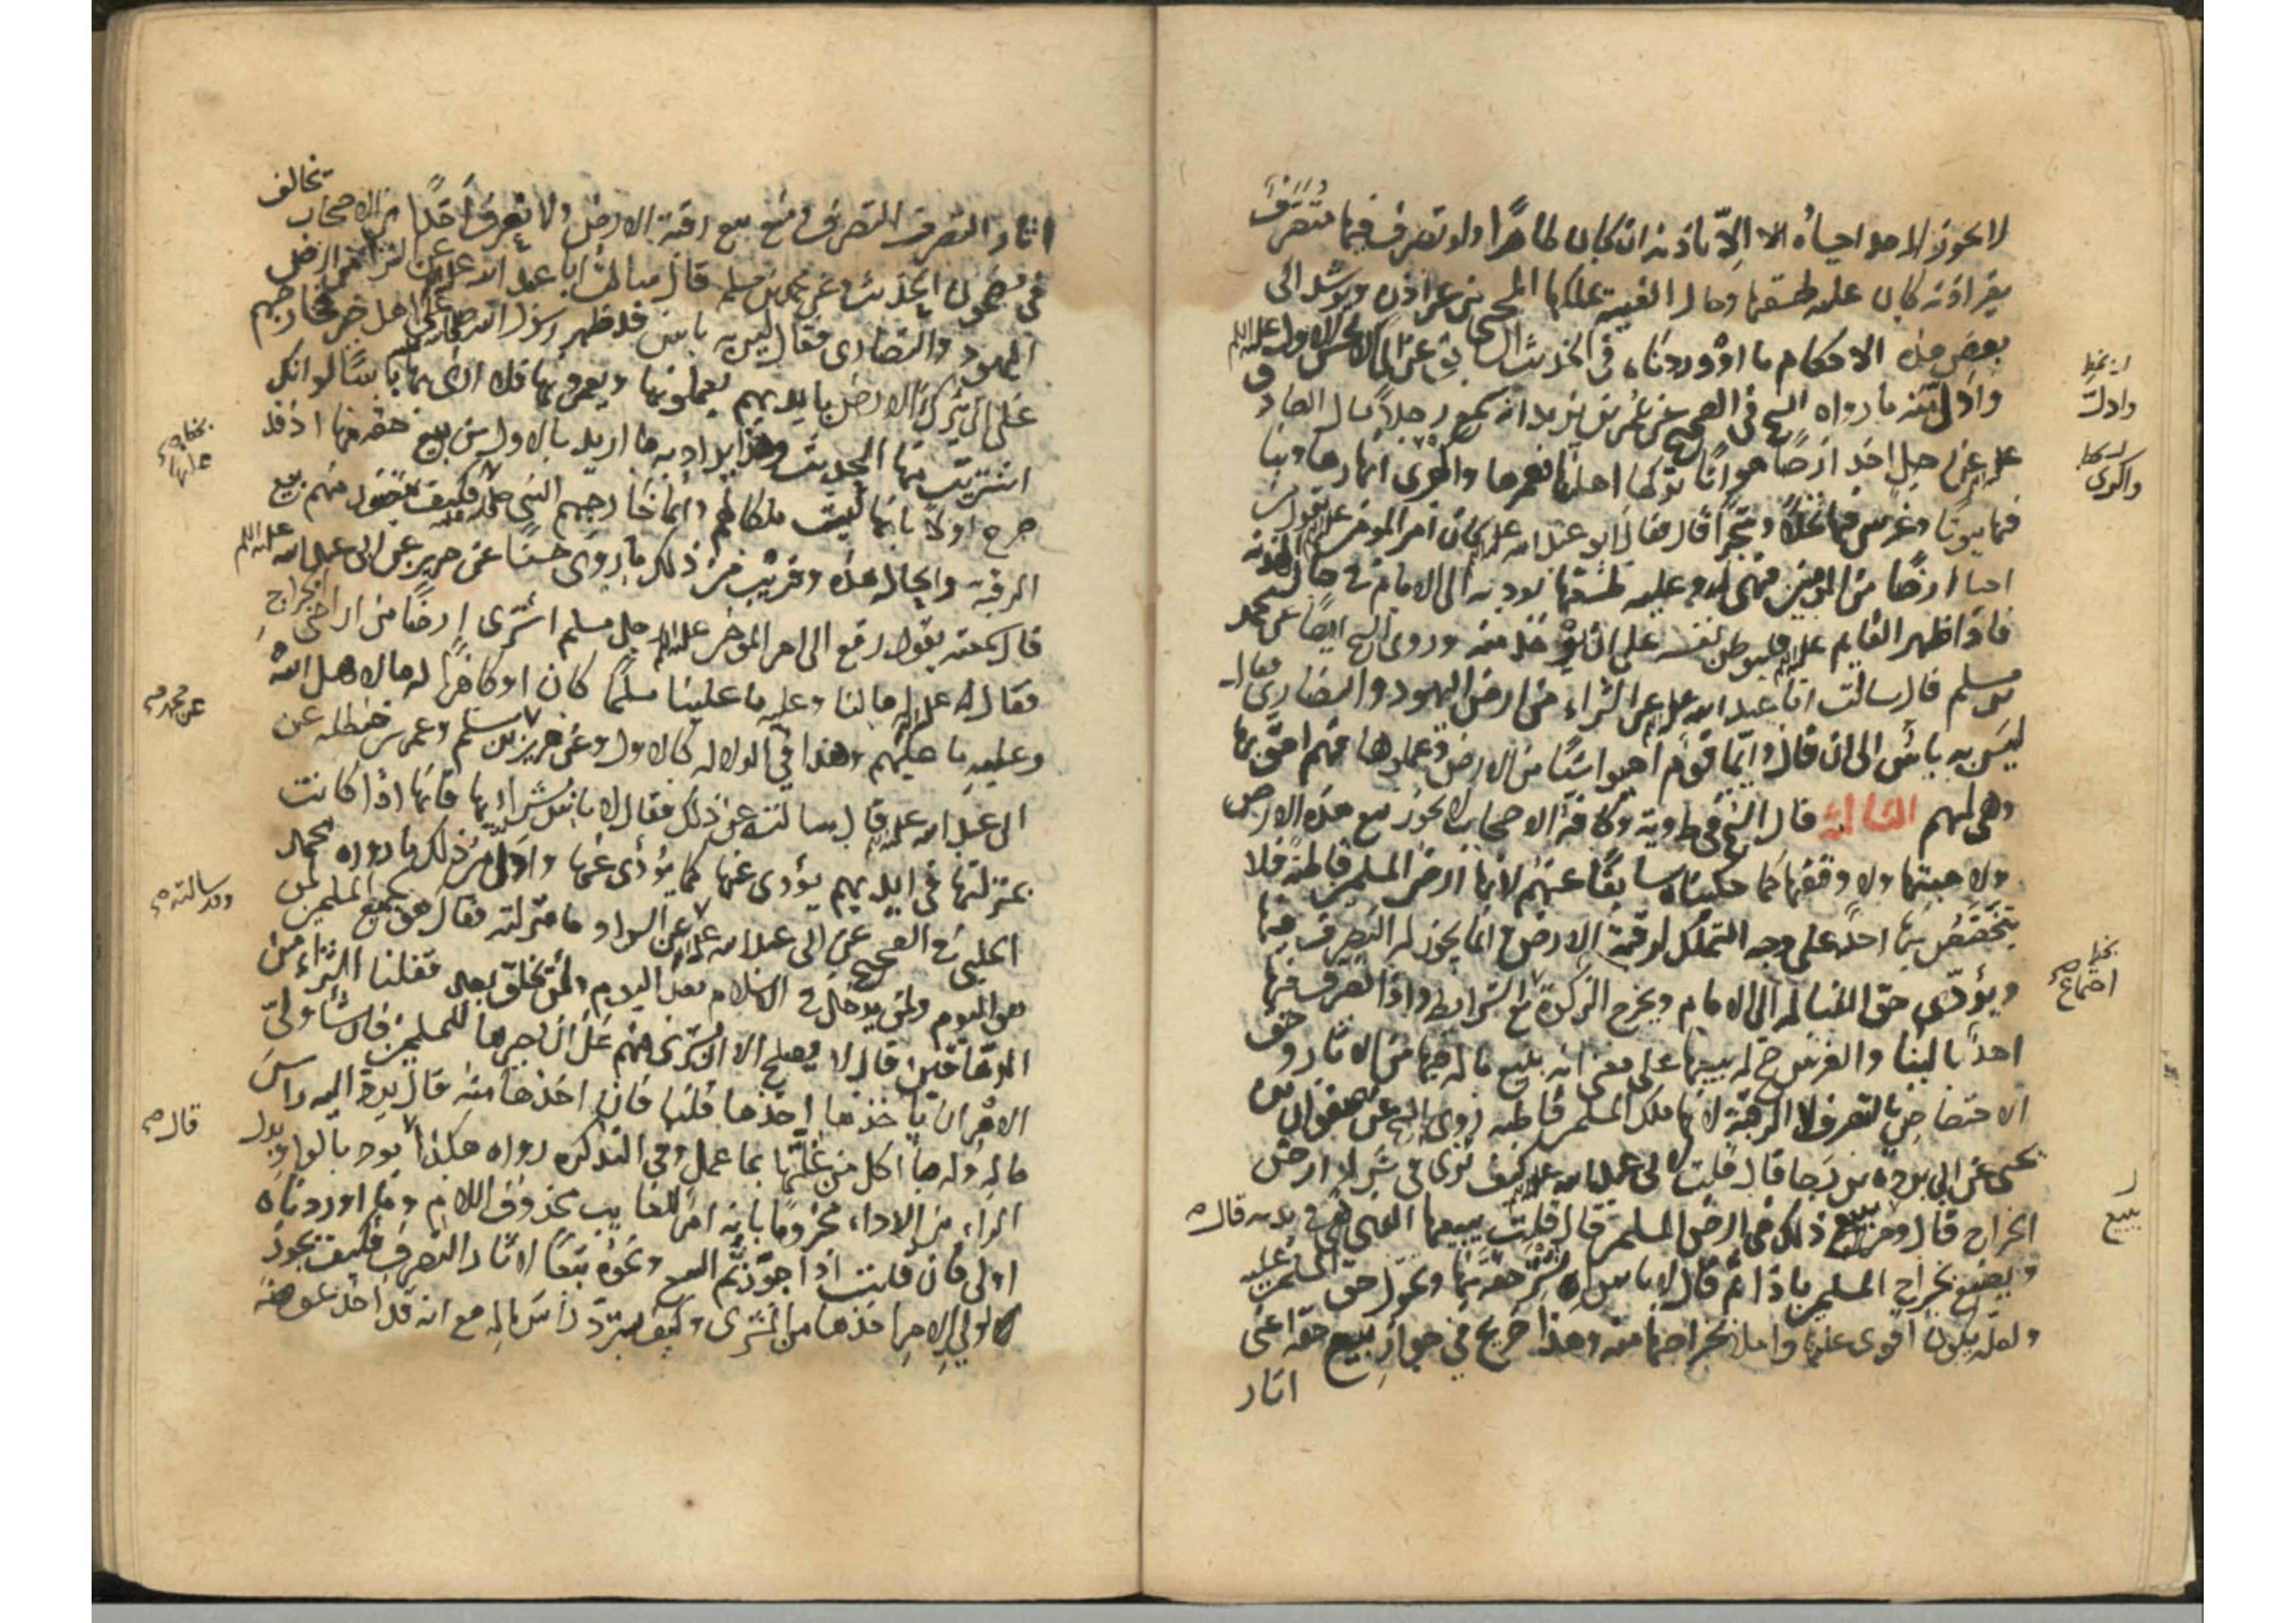 لا يجوز لاحد احياؤه الا باذنه ان كان ظاهرا ولو تصرف فيها متصرف
بغير اذنه كان عليه طسقها وحال الغيبة يملكها المحيى من غير اذن ويرشد الى
بعض هذه الاحكام ما اوردناه في الحديث السابق عن ابى الحسن الاول عليه السلم
وادل منه ما رواه الشيخ في الصحيح عن عمر بن يزيد انه سمع رجلا سال الصادق
عليه عن رجل اخذ ارضا مواتا تركها اهلها فعمرها واكرى انهارها وبنا
فيها بيوتا وغرس فيها نخلا وشجرا قال فقال ابو عبد الله عليه كان امير المومنين عليه يقول من
احيا ارضا من المومنين فهى له وعليه طسقها يوديه الى الامام في حال الهدنة
فاذا ظهر القايم عليه فليوطن نفسه على ان تؤخذ منه وروى الشيخ ايضا عن محمد
بن مسلم قال سالت ابا عبد الله عليه عن الشراء من ارض اليهود والنصارى فقال
ليس به باس الى ان قال وايما قوم احيوا شيئا من الارض وعملوها فهم احق بها
وهى لهم الثالثة قال الشيخ في ط وية وكافة الاصحاب لا يجوز بيع هذه الارض
ولا هبتها ولا وقفها كما حكيناه سابقا عنهم لانها ارض المسلمين قاطبة فلا
يتخصص بها احد على وجه التملك لرقبة الارض انما يجوز له التصرف فيها
ويؤدى حق القبالة الى الامام ويخرج الزكوة مع الشرايط واذا تصرف فيها
احد بالبنا والغرس صح له بيعها على معنى انه يبيع ماله فيها من الاثار وحق
الاختصاص بالتصرف لا الرقبة لانها ملك المسلمين قاطبة روى الشيخ عن صفوان بن
يحيى عن ابى بردة بن رجا قال قلت لابى عبد الله عليه كيف ترى في شراء ارض
الخراج قال ومن يبيع ذلك هى ارض المسلمين قال قلت يبيعها الذى هى في يده قال
ويصنع بخراج المسلمين ماذا ثم قال لا باس اشترى حقه منها ويحول حق المسلمين عليه
ولعله يكون اقوى عليها واملا بخراجها منه وهذا صريح في جواز بيع حقه اعنى
اثار
بخطه
وادل
واكرى
بخطه
اجتماع
يبيع
اثار التصرف المتصرف ومنع بيع رقبة الارض ولا نعرف احدا من الاصحاب يخالف
في مضمون الحديث وعن محمد بن مسلم قال سالت ابا عبد الله عليه عن الشراء من ارض
اليهود والنصارى فقال ليس به باس قد ظهر رسول الله على اهل خيبر فخارجهم
على ان يترك الارض بايديهم يعملونها ويعمرونها فلا ارى بها باسا لو انك
اشتريت منها الحديث وهذا يراد به ما اريد بالاول من بيع حقه منها اذ قد
صرح اولا بانها ليست ملكا لهم وانما خارجهم النبي فكيف يتصور منهم بيع
الرقبة والحال هذه وقريب من ذلك ما روى حسنا عن حريز عن ابى عبد الله عليه السلم
قال سمعته يقول رفع الى امير المومنين عليه رجل مسلم اشترى ارضا من اراضى الخراج
فقال له عليه له ما لنا وعليه ما علينا مسلما كان او كافرا له ما لاهل الله
وعليه ما عليهم وهذا في الدلالة كالاول وعن حريز بن مسلم وعمر بن حنظلة عن
ابى عبد الله عليه قال سالته عن ذلك فقال لا باس بشرائها فانها اذا كانت
بمنزلتها في ايديهم يؤدى عنها كما يؤدى عنها وادل من ذلك ما رواه محمد
الحلبى في الصحيح عن ابى عبد الله عليه عن السواد ما منزلته فقال هو لجميع المسلمين لمن
هو اليوم ولمن يدخل في الاسلام بعد اليوم ولمن يخلق بعد فقلنا الشراء من
الدهاقين قال لا يصلح الا ان يشترى منهم على ان يصيرها للمسلمين فان شاء ولى
الامر ان ياخذها اخذها قلنا فان اخذها منه قال يرد اليه راس
ماله وله ما اكل من غلتها بما عمل وفي التذكرة رواه هكذا يود بالواو بدل
الراء من الاداء مجزوما بانه امر للغايب محذوف اللام وما اوردناه
اولى فان قلت اذا جوزتم البيع ونحوه تبعا لاثار التصرف فكيف يجوز
لولى الامر اخذها من المشترى وكيف يسترد راس ماله مع انه قد اخذ عوضه
عليها
عن محمد
وقد سالته
قال